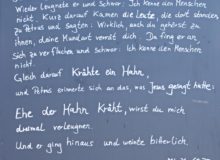 Wieder leugnete er und schwor: Ich kenne den Menschen
nicht. Kurz darauf kamen die Leute, die dort standen,
zu Petrus und sagten: Wirklich, auch du gehörst zu
ihnen, deine Mundart verrät dich. Da fing er an
sich zu verfluchen und schwor: Ich kenne den Menschen
nicht.
Gleich darauf krähte ein Hahn,
und Petrus erinnerte sich an das, was Jesus gesagt hatte:
Ehe der Hahn kräht, wirst du mich
dreimal verleugnen.
Und er ging hinaus und weinte bitterlich.